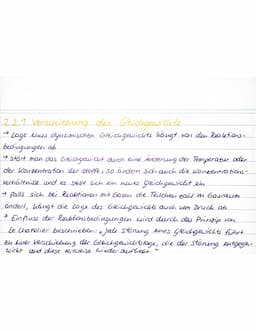 2.2.1 Verschiebung des Gleichgewichts
→ Lage eines dynamischen Gleichgewichts hängt von den Reaktions-
bedingungen ab
→ stört man das Gleichgewicht durch eine Änderung der Temperatur oder
der Konzentration der Stoffe, so ändern sich auch die Konzentrations-
verhältnisse und es stellt sich ein neues Gleichgewicht ein
→ falls sich bei Reaktionen mit Gasen die Teilchenzahl im Gasraum
ändert, hängt die Lage des Gleichgewichts auch vom Druck ab
→ Einfluss der Reaktionsbedingungen wird durch das Prinzip von
Le Chatelier beschrieben: „Jede Störung eines Gleichgewichts führt
zu einer Verschiebung der Gleichgewichtslage, die der Störung entgegen-
wirkt und diese teilweise wieder aufhebt."